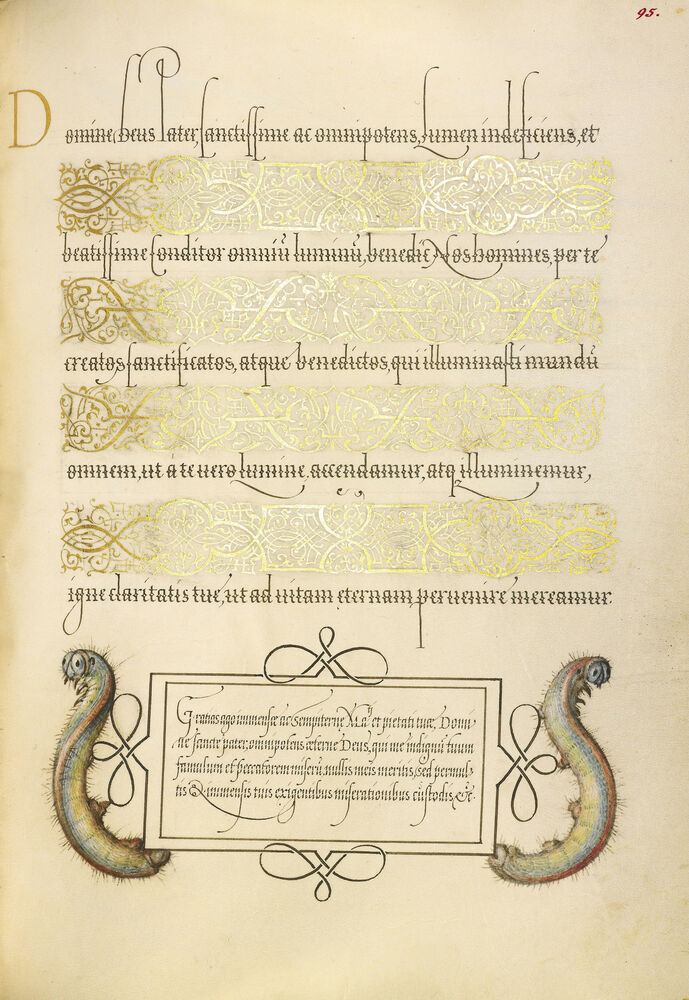 95.
Domine, Deus Pater, sanctissime ac omnipotens, Lumen indeficiens, et
beatissime Conditor omniũ luminũ, benedic Nos homines, per te
creatos sanctificatos, atque benedictos, qui illuminasti mundũ
omnem, ut á te uero lumine accendamur, atq illuminemur,
igne claritatis tuę, ut ad uitam eternam peruenire mereamur.
Gratias ago immensæ ac sempiternę Ma^ti et pietati tuæ, Domi-
ne sancte pater, omnipotens æterne Deus, qui me indignũ tuum
famulum et peccatorem miserũ, nullis meis meritis, sed permul-
tis & immensis tuis exigentibus miserationibus cũstodis, &c.